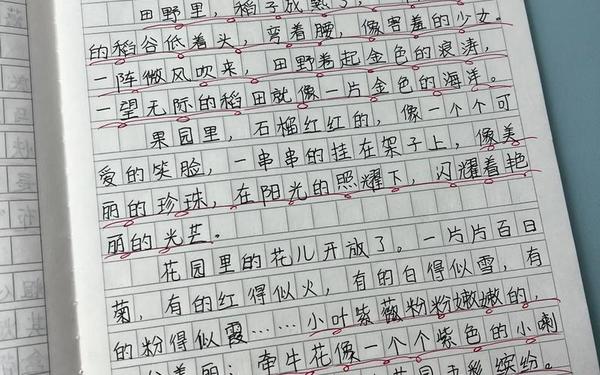 田野里，稻子成熟了，
的稻谷低着头，弯着腰，像害羞的少女。
一阵微风吹来，田野卷起金色的浪涛，
一望无际的稻田就像一片金色的海洋。
果园里，石榴红红的，像一个个可
爱的笑脸，一串串的挂在架子上，像美
丽的珍珠，在阳光的照耀下，闪耀着艳
丽的光芒。
花园里的花儿开放了。一片片百日
菊，有的红得似火，有的白得似雪，有
的粉得似霞……小叶紫薇粉粉嫩嫩的，
美丽；牵牛花像一个个紫色的小喇
花园五彩缤纷。